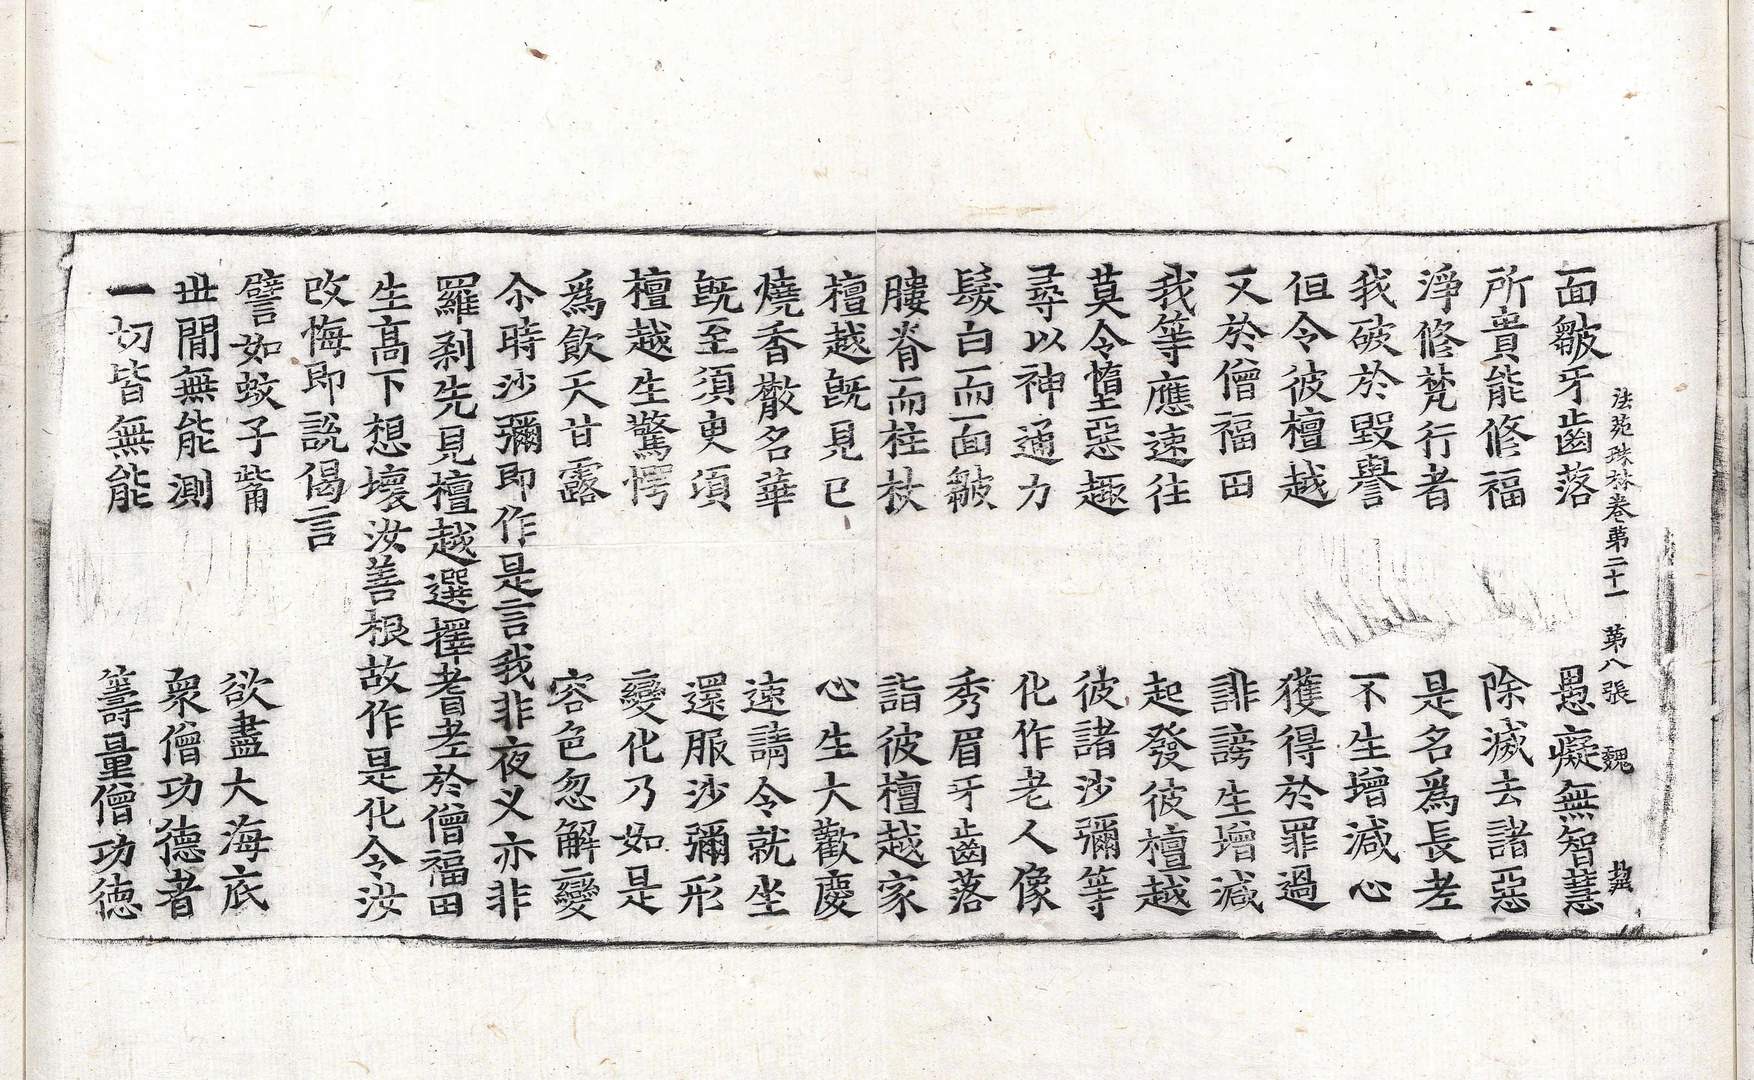 法苑珠林卷第二十一　第八張　魏
面皺牙齒落　愚癡無智慧
所貴能修福　除滅去諸惡
淨修梵行者　是名爲長老
我破於毀譽　不生增減心
但令彼檀越　獲得於罪過
又於僧福田　誹謗生增減
我等應速往　起發彼檀越
莫令墮惡趣　彼諸沙彌等
尋以神通力　化作老人像
髮白而面皺　秀眉牙齒落
膢脊而柱杖　詣彼檀越家
檀越旣見已　心生大歡慶
燒香散名華　速請令就坐
旣至須臾須　還服沙彌形
檀越生驚愕　變化乃如是
爲飮天甘露　容色忽解變
尒時沙彌即作是言我非夜叉亦非
羅刹先見檀越選擇耆老於僧福田
生高下想壞汝善根故作是化令汝
改悔即說偈言
譬如蚊子觜　欲盡大海底
世閒無能測　衆僧功德者
一切皆無能　籌量僧功德